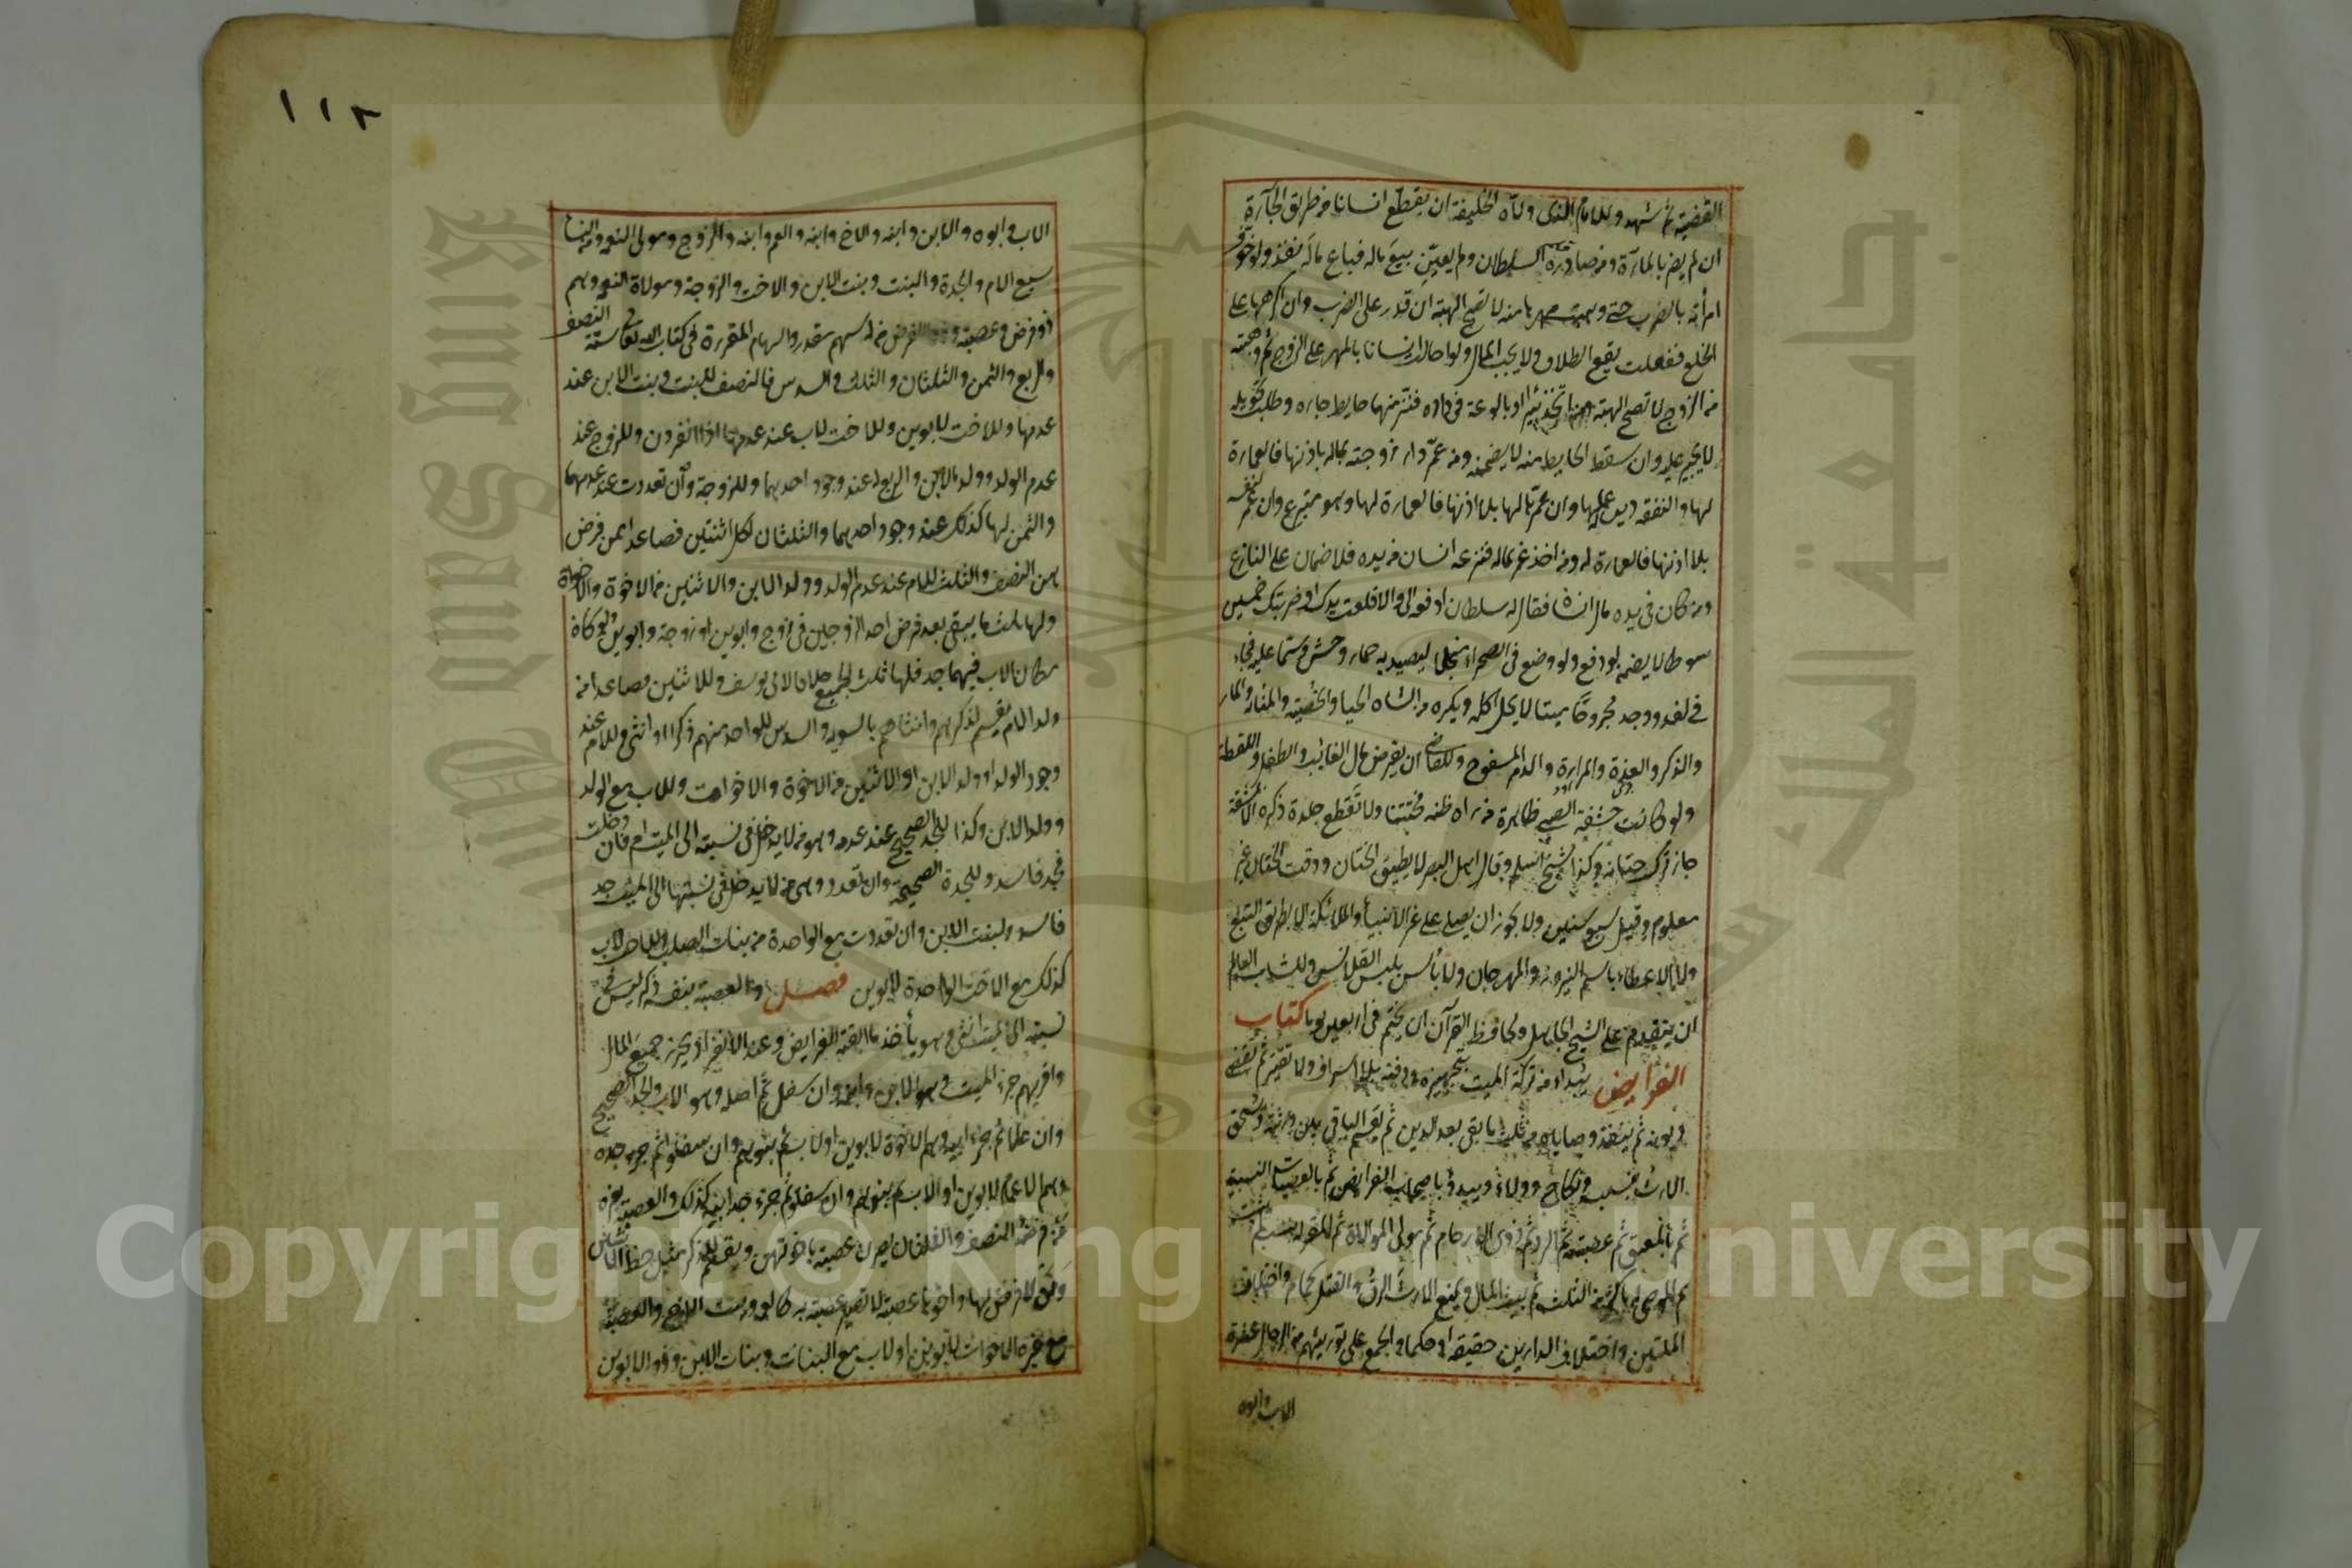 القضية ثم شهد وللامام الذى ولاه الخليفة ان يقطع انسانا من طريق الجآرة
ان لم يضر بالمارة ومن صادره السلطان ولم يعين بيع ماله فباع ماله نفذ ولو خوف
امرأته بالضرب حتى وهبت مهرها منه لا تصح الهبة ان قدر على الضرب وان اكرهها على
الخلع ففعلت يقع الطلاق ولا يجب المال ولو احالت انسانا بالمهر على الزوج ثم وهبته
من الزوج لا تصح الهبة اتخذ بئرا او بالوعة فى داره فنز منها حايط جاره وطلب تحويله
لا يجبر عليه وان سقط الحايط منه لا يضمنه ومن عمر دار زوجته بماله باذنها فالعمارة
لها والنفقه دين عليها وان عمرها لها بلا اذنها فالعمارة لها وهو متبرع وان عمر لنفسه
بلا اذنها فالعمارة له ومن اخذ غريماله فنزعه انسان من يده فلا ضمان على النازع
ومن كان فى يده مال انسان فقال له سلطان ادفعه الى والا قطعت يدك او ضربتك خمسين
سوطا لا يضمن لو دفع ولو وضع فى الصحراء منجلا ليصيد به حمار وحش وسمى عليه فجاء
فى الغد ووجد مجروحا ميتا لا يحل اكله ويكره من الشاه الحيا والخصية والمثانة والمار
والذكر والغدة والمرارة والدم المسفوح وللقاضى ان يقرض مال الغائب والطفل واللقطة
ولو كانت حشفة الصبى ظاهرة من راه ظنه مختتنا ولا تقطع جلدة ذكره الا بمشقة
جاز ترك ختانه وكذا شيخ اسلم وقال اهل البصر لا يطيق الختان ووقت الختان غير
معلوم وقيل سبع سنين ولا يجوز ان يصلى على غير الانبياء والملائكة الا بطريق التبع
ولا الاعطاء باسم النيروز والمهرجان ولا بأس بلبس القلانس وللشاب العالم
ان يتقدم على الشيخ الجاهل ولحافظ القرآن ان يختم فى اربعين يوما كتاب
الفرايض يبداء من تركة الميت بتجهيزه ودفنه بلا اسراف ولا تقتير ثم تقضى
ديونه ثم ينفذ وصاياه من ثلث ما بقى بعد الدين ثم يقسم الباقى بين ورثته ويستحق
الارث بنسب ونكاح وولاء ويبدؤ باصحاب الفرايض ثم بالعصبات النسبية
ثم بالمعتق ثم عصبته ثم الرد ثم ذوى الارحام ثم مولى الموالاة ثم المقر له بنسب لم يثبت
ثم الموصى له باكثر من الثلث ثم بيت المال ويمنع الارث الرق والقتل كما مر واختلاف
الملتين واختلاف الدارين حقيقة او حكما والمجمع على توريثهم من الرجال عشرة
الاب وابوه
١١٢
الاب وابوه والابن وابنه والاخ وابنه والعم وابنه والزوج ومولى النعمة ومن النساء
سبع الام والجدة والبنت وبنت الابن والاخت والزوجة ومولاة النعمة وهم
ذو فرض وعصبة وذو الفرض من له سهم مقدر والسهام المقررة فى كتاب الله تعالى ستة النصف
والربع والثمن والثلثان والثلث والسدس فالنصف للبنت وبنت الابن عند
عدمها وللاخت لابوين وللاخت لاب عند عدمها اذا انفردن وللزوج عند
عدم الولد وولد الابن والربع له عند وجود احدهما وللزوجة وان تعددت عند عدمهما
والثمن لها كذلك عند وجود احدهما والثلثان لكل اثنتين فصاعدا ممن فرض
من النصف والثلث للام عند عدم الولد وولد الابن والاثنين من الاخوة والاخوات
ولها ثلث ما يبقى بعد فرض احد الزوجين فى زوج وابوين او زوجة وابوين ولو كان
مكان الاب فيهما جد فلها ثلث الجميع خلافا لابى يوسف وللاثنين فصاعدا من
ولد الام يقسم لذكرهم وانثاهم بالسويه والسدس للواحد منهم ذكرا او انثى وللام عند
وجود الولد او ولد الابن او الاثنين من الاخوة والاخوات وللاب مع الولد
وولد الابن وكذا للجد الصحيح عند عدمه وهو من لا يدخل فى نسبته الى الميت ام فان دخلت
فجد فاسد وللجدة الصحيحة وان تعددت وهى من لا يدخل فى نسبتها الى الميت جد
فاسد ولبنت الابن وان تعددت مع الواحدة من بنات الصلب وللاخت لاب
كذلك مع الاخت الواحدة لابوين فصل والعصبة بنفسه ذكر ليس فى
نسبته الى الميت انثى وهو يأخذ ما ابقته الفرايض وعند الانفراد يحرز جميع المال
واقربهم جزء الميت وهو الابن وابنه وان سفل ثم اصله وهو الاب والجد الصحيح
وان علا ثم جزء ابيه وهم الاخوة لابوين او لاب ثم بنوهم وان سفلوا ثم جزء جده
وهم الاعمام لابوين او لاب ثم بنوهم وان سفلوا ثم جزء جد ابيه كذلك والعصبة بغيره
من فرضه النصف والثلثان يصرن عصبة باخوتهن ويقسم للذكر مثل حظ الانثيين
ومن لا فرض لها واخوها عصبة لا تصير عصبة به كالعم وبنت الاخ والعصبة
مع غيره الاخوات لابوين او لاب مع البنات وبنات الابن وذو الابوين
Copyright © King Saud University
جامعة الملك سعود
King Saud University
1957